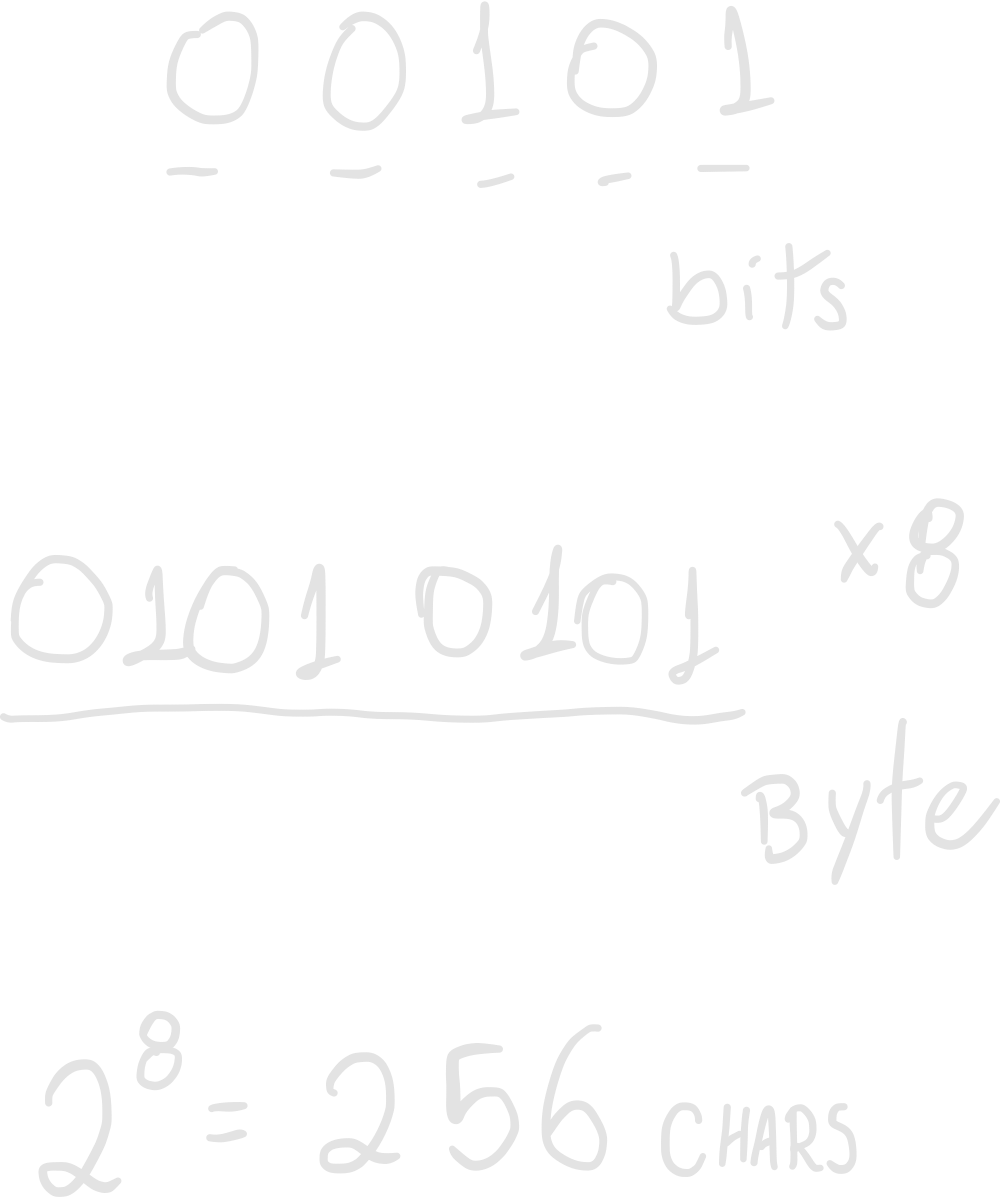 0 0 1 0 1
bits
0101 0101 x8
Byte
2⁸ = 256 CHARS